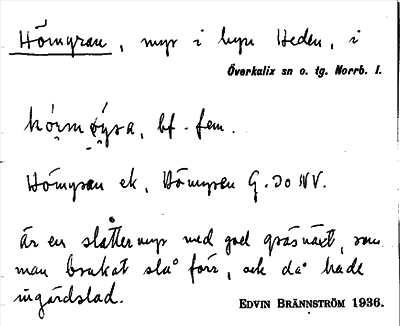 Hömyran, myr i byn Heden, i
Överkalix sn o. tg. Norrb. l.
bf. fem.
Hömyran ek, Hömyren G. 30 NV.
är en slåttermyr med god gräsväxt, som
man brukat slå förr, och då hade
ingärdslad.
EDVIN BRÄNNSTRÖM 1936.